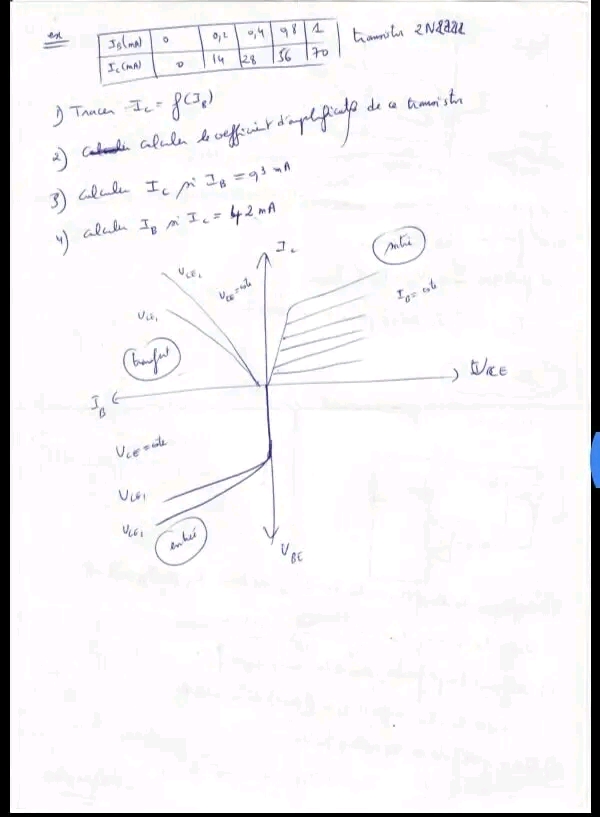 ex
IB(mA) 0 0,2 0,4 0,8 1
IC(mA) 0 14 28 56 70
transistor 2N2222
1) Tracer IC = f(IB)
2) calculer le coefficient d'amplificat° de ce transistor
3) calculer IC si IB = 0,3 mA
4) calculer IB si IC = 42 mA
IC
sortie
VCE1
VCE = cste
IB = cste
VCE1
transfert
VCE
IB
VCE = cste
VCE1
VCE1
entrée
VBE